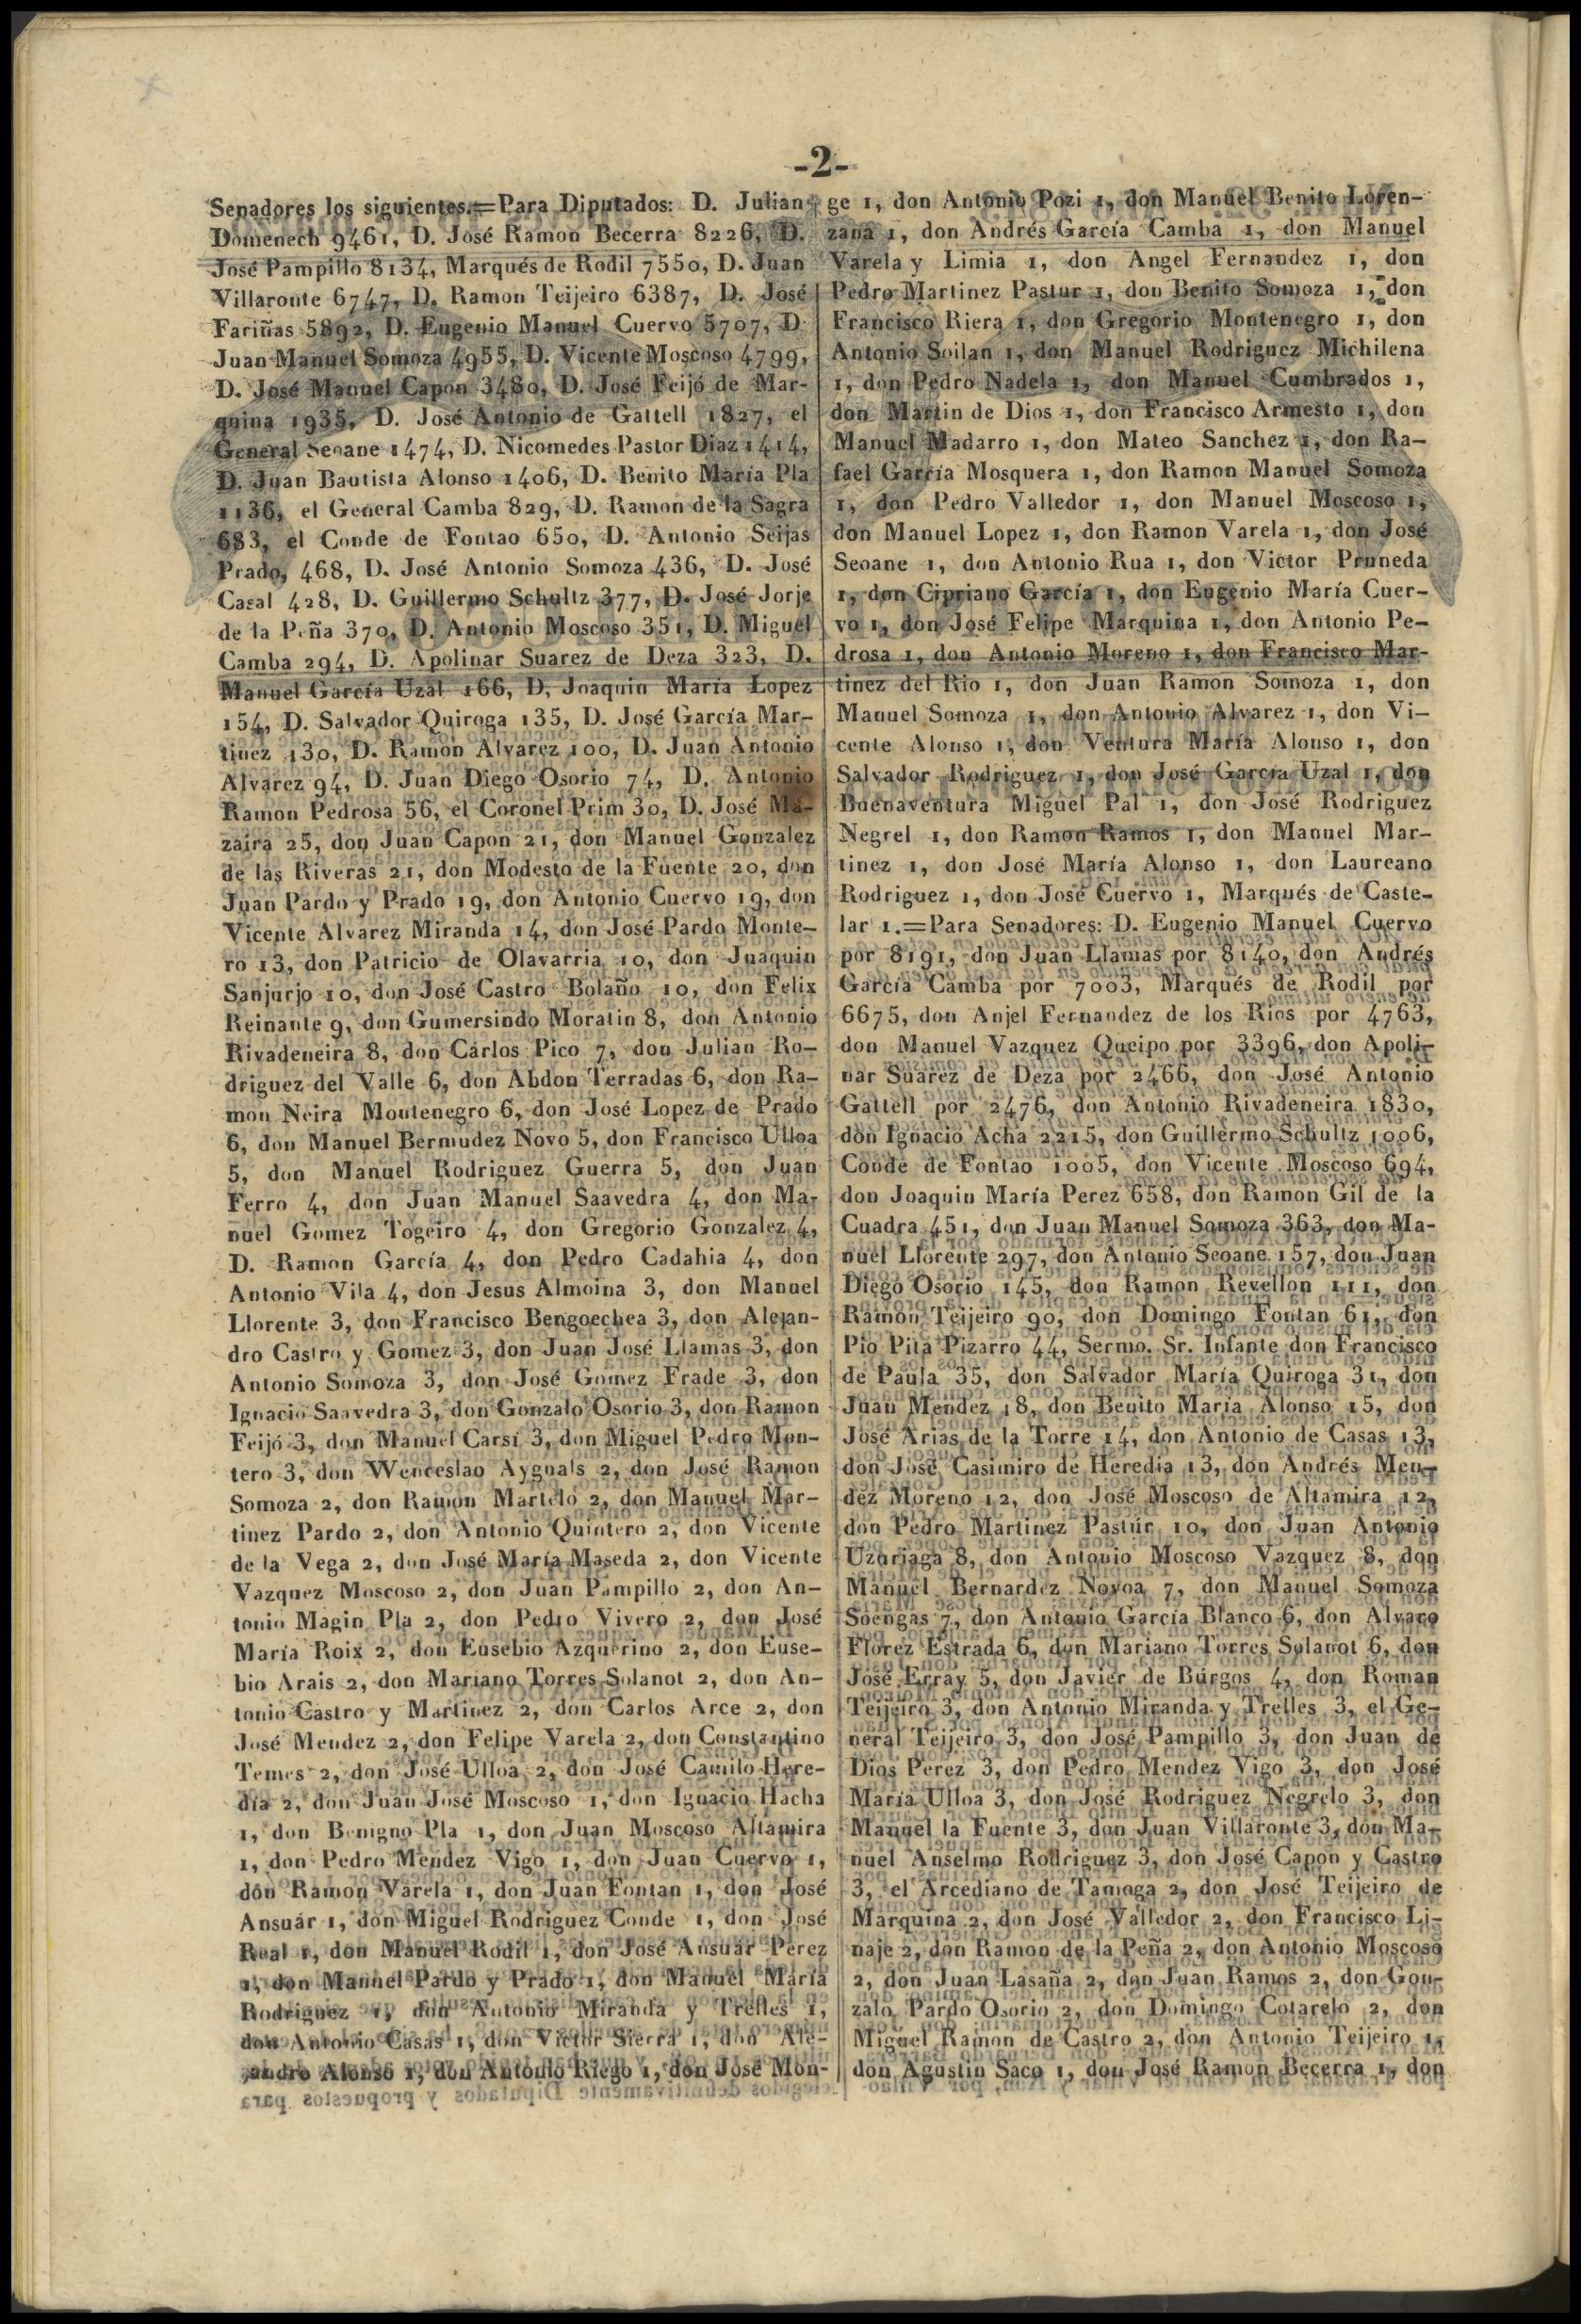 -2-
Senadores los siguientes.=Para Diputados: D. Julian
Domenech 9461, D. José Ramon Becerra 8226, D.
José Pampillo 8134, Marqués de Rodil 7550, D. Juan
Villaronte 6747, D. Ramon Teijeiro 6387, D. José
Fariñas 5892, D. Eugenio Manuel Cuervo 5707, D
Juan Manuel Somoza 4955, D. Vicente Moscoso 4799,
D. José Manuel Capon 3480, D. José Feijó de Mar-
quina 1935, D. José Antonio de Gattell 1827, el
General Seoane 1474, D. Nicomedes Pastor Diaz 1414,
D. Juan Bautista Alonso 1406, D. Benito María Pla
1136, el General Camba 829, D. Ramon de la Sagra
683, el Conde de Fontao 650, D. Antonio Seijas
Prado, 468, D. José Antonio Somoza 436, D. José
Casal 428, D. Guillermo Schultz 377, D. José Jorje
de la Peña 370, D. Antonio Moscoso 351, D. Miguel
Camba 294, D. Apolinar Suarez de Deza 323, D.
Manuel García Uzal 166, D, Joaquin María Lopez
154, D. Salvador Quiroga 135, D. José García Mar-
tinez 130, D. Ramon Alvarez 100, D. Juan Antonio
Alvarez 94, D. Juan Diego Osorio 74, D. Antonio
Ramon Pedrosa 56, el Coronel Prim 30, D. José Ma-
zaira 25, don Juan Capon 21, don Manuel Gonzalez
de las Riveras 21, don Modesto de la Fuente 20, don
Juan Pardo y Prado 19, don Antonio Cuervo 19, don
Vicente Alvarez Miranda 14, don José Pardo Monte-
ro 13, don Patricio de Olavarria 10, don Juaquin
Sanjurjo 10, don José Castro Bolaño 10, don Felix
Reinante 9, don Gumersindo Moratin 8, don Antonio
Rivadeneira 8, don Cárlos Pico 7, don Julian Ro-
driguez del Valle 6, don Abdon Terradas 6, don Ra-
mon Neira Montenegro 6, don José Lopez de Prado
6, don Manuel Bermudez Novo 5, don Francisco Ulloa
5, don Manuel Rodriguez Guerra 5, don Juan
Ferro 4, don Juan Manuel Saavedra 4, don Ma-
nuel Gomez Togeiro 4, don Gregorio Gonzalez 4,
D. Ramon García 4, don Pedro Cadahia 4, don
Antonio Vila 4, don Jesus Almoina 3, don Manuel
Llorente 3, don Francisco Bengoechea 3, don Alejan-
dro Castro y Gomez 3, don Juan José Llamas 3, don
Antonio Somoza 3, don José Gomez Frade 3, don
Ignacio Saavedra 3, don Gonzalo Osorio 3, don Ramon
Feijó 3, don Manuel Carsí 3, don Miguel Pedro Mon-
tero 3, don Wenceslao Ayguals 2, don José Ramon
Somoza 2, don Ramon Martelo 2, don Manuel Mar-
tinez Pardo 2, don Antonio Quintero 2, don Vicente
de la Vega 2, don José María Maseda 2, don Vicente
Vazquez Moscoso 2, don Juan Pampillo 2, don An-
tonio Magin Pla 2, don Pedro Vivero 2, don José
María Roix 2, don Eusebio Azquerino 2, don Euse-
bio Arais 2, don Mariano Torres Solanot 2, don An-
tonio Castro y Martinez 2, don Carlos Arce 2, don
José Mendez 2, don Felipe Varela 2, don Constantino
Temes 2, don José Ulloa 2, don José Camilo Here-
dia 2, don Juan José Moscoso 1, don Ignacio Hacha
1, don Benigno Pla 1, don Juan Moscoso Altamira
1, don Pedro Mendez Vigo 1, don Juan Cuervo 1,
don Ramon Varela 1, don Juan Fontan 1, don José
Ansuár 1, don Miguel Rodriguez Conde 1, don José
Real 1, don Manuel Rodil 1, don José Ansuar Perez
1, don Manuel Pardo y Prado 1, don Manuel María
Rodriguez 1, don Antonio Miranda y Trelles 1,
don Antonio Casas 1, don Victor Sierra 1, don Ale-
jandro Alonso 1, don Antonio Riego 1, don José Mon-
ge 1, don Antonio Pozi 1, don Manuel Benito Loren-
zana 1, don Andrés García Camba 1, don Manuel
Varela y Limia 1, don Angel Fernandez 1, don
Pedro Martinez Pastur 1, don Benito Somoza 1, don
Francisco Riera 1, don Gregorio Montenegro 1, don
Antonio Soilan 1, don Manuel Rodriguez Michilena
1, don Pedro Nadela 1, don Manuel Cumbrados 1,
don Martin de Dios 1, don Francisco Armesto 1, don
Manuel Madarro 1, don Mateo Sanchez 1, don Ra-
fael García Mosquera 1, don Ramon Manuel Somoza
1, don Pedro Valledor 1, don Manuel Moscoso 1,
don Manuel Lopez 1, don Ramon Varela 1, don José
Seoane 1, don Antonio Rua 1, don Victor Pruneda
1, don Cipriano García 1, don Eugenio María Cuer-
vo 1, don José Felipe Marquina 1, don Antonio Pe-
drosa 1, don Antonio Moreno 1, don Francisco Mar-
tinez del Rio 1, don Juan Ramon Somoza 1, don
Manuel Somoza 1, don Antonio Alvarez 1, don Vi-
cente Alonso 1, don Ventura María Alonso 1, don
Salvador Rodriguez 1, don José García Uzal 1, don
Buenaventura Miguel Pal 1, don José Rodriguez
Negrel 1, don Ramon Ramos 1, don Manuel Mar-
tinez 1, don José María Alonso 1, don Laureano
Rodriguez 1, don José Cuervo 1, Marqués de Caste-
lar 1.=Para Senadores: D. Eugenio Manuel Cuervo
por 8191, don Juan Llamas por 8140, don Andrés
García Camba por 7003, Marqués de Rodil por
6675, don Anjel Fernandez de los Rios por 4763,
don Manuel Vazquez Queipo por 3396, don Apoli-
nar Suarez de Deza por 2466, don José Antonio
Gattell por 2476, don Antonio Rivadeneira 1830,
don Ignacio Acha 2215, don Guillermo Schultz 1006,
Conde de Fontao 1005, don Vicente Moscoso 694,
don Joaquin María Perez 658, don Ramon Gil de la
Cuadra 451, don Juan Manuel Somoza 363, don Ma-
nuel Llorente 297, don Antonio Seoane 157, don Juan
Diego Osorio 145, don Ramon Revellon 111, don
Ramon Teijeiro 90, don Domingo Fontan 61, don
Pio Pita Pizarro 44, Sermo. Sr. Infante don Francisco
de Paula 35, don Salvador María Quiroga 31, don
Juan Mendez 18, don Benito María Alonso 15, don
José Arias de la Torre 14, don Antonio de Casas 13,
don José Casimiro de Heredia 13, don Andrés Men-
dez Moreno 12, don José Moscoso de Altamira 12,
don Pedro Martinez Pastúr 10, don Juan Antonio
Uzuriaga 8, don Antonio Moscoso Vazquez 8, don
Manuel Bernardez Novoa 7, don Manuel Somoza
Soengas 7, don Antonio García Blanco 6, don Alvaro
Florez Estrada 6, don Mariano Torres Solanot 6, don
José Erray 5, don Javier de Búrgos 4, don Roman
Teijeiro 3, don Antonio Miranda y Trelles 3, el Ge-
neral Teijeiro 3, don José Pampillo 3, don Juan de
Dios Perez 3, don Pedro Mendez Vigo 3, don José
María Ulloa 3, don José Rodriguez Negrelo 3, don
Manuel la Fuente 3, don Juan Villaronte 3, don Ma-
nuel Anselmo Rodriguez 3, don José Capon y Castro
3, el Arcediano de Tamoga 2, don José Teijeiro de
Marquina 2, don José Valledor 2, don Francisco Li-
naje 2, don Ramon de la Peña 2, don Antonio Moscoso
2, don Juan Lasaña 2, don Juan Ramos 2, don Gon-
zalo Pardo Osorio 2, don Domingo Cotarelo 2, don
Miguel Ramon de Castro 2, don Antonio Teijeiro 1,
don Agustin Saco 1, don José Ramon Becerra 1, don